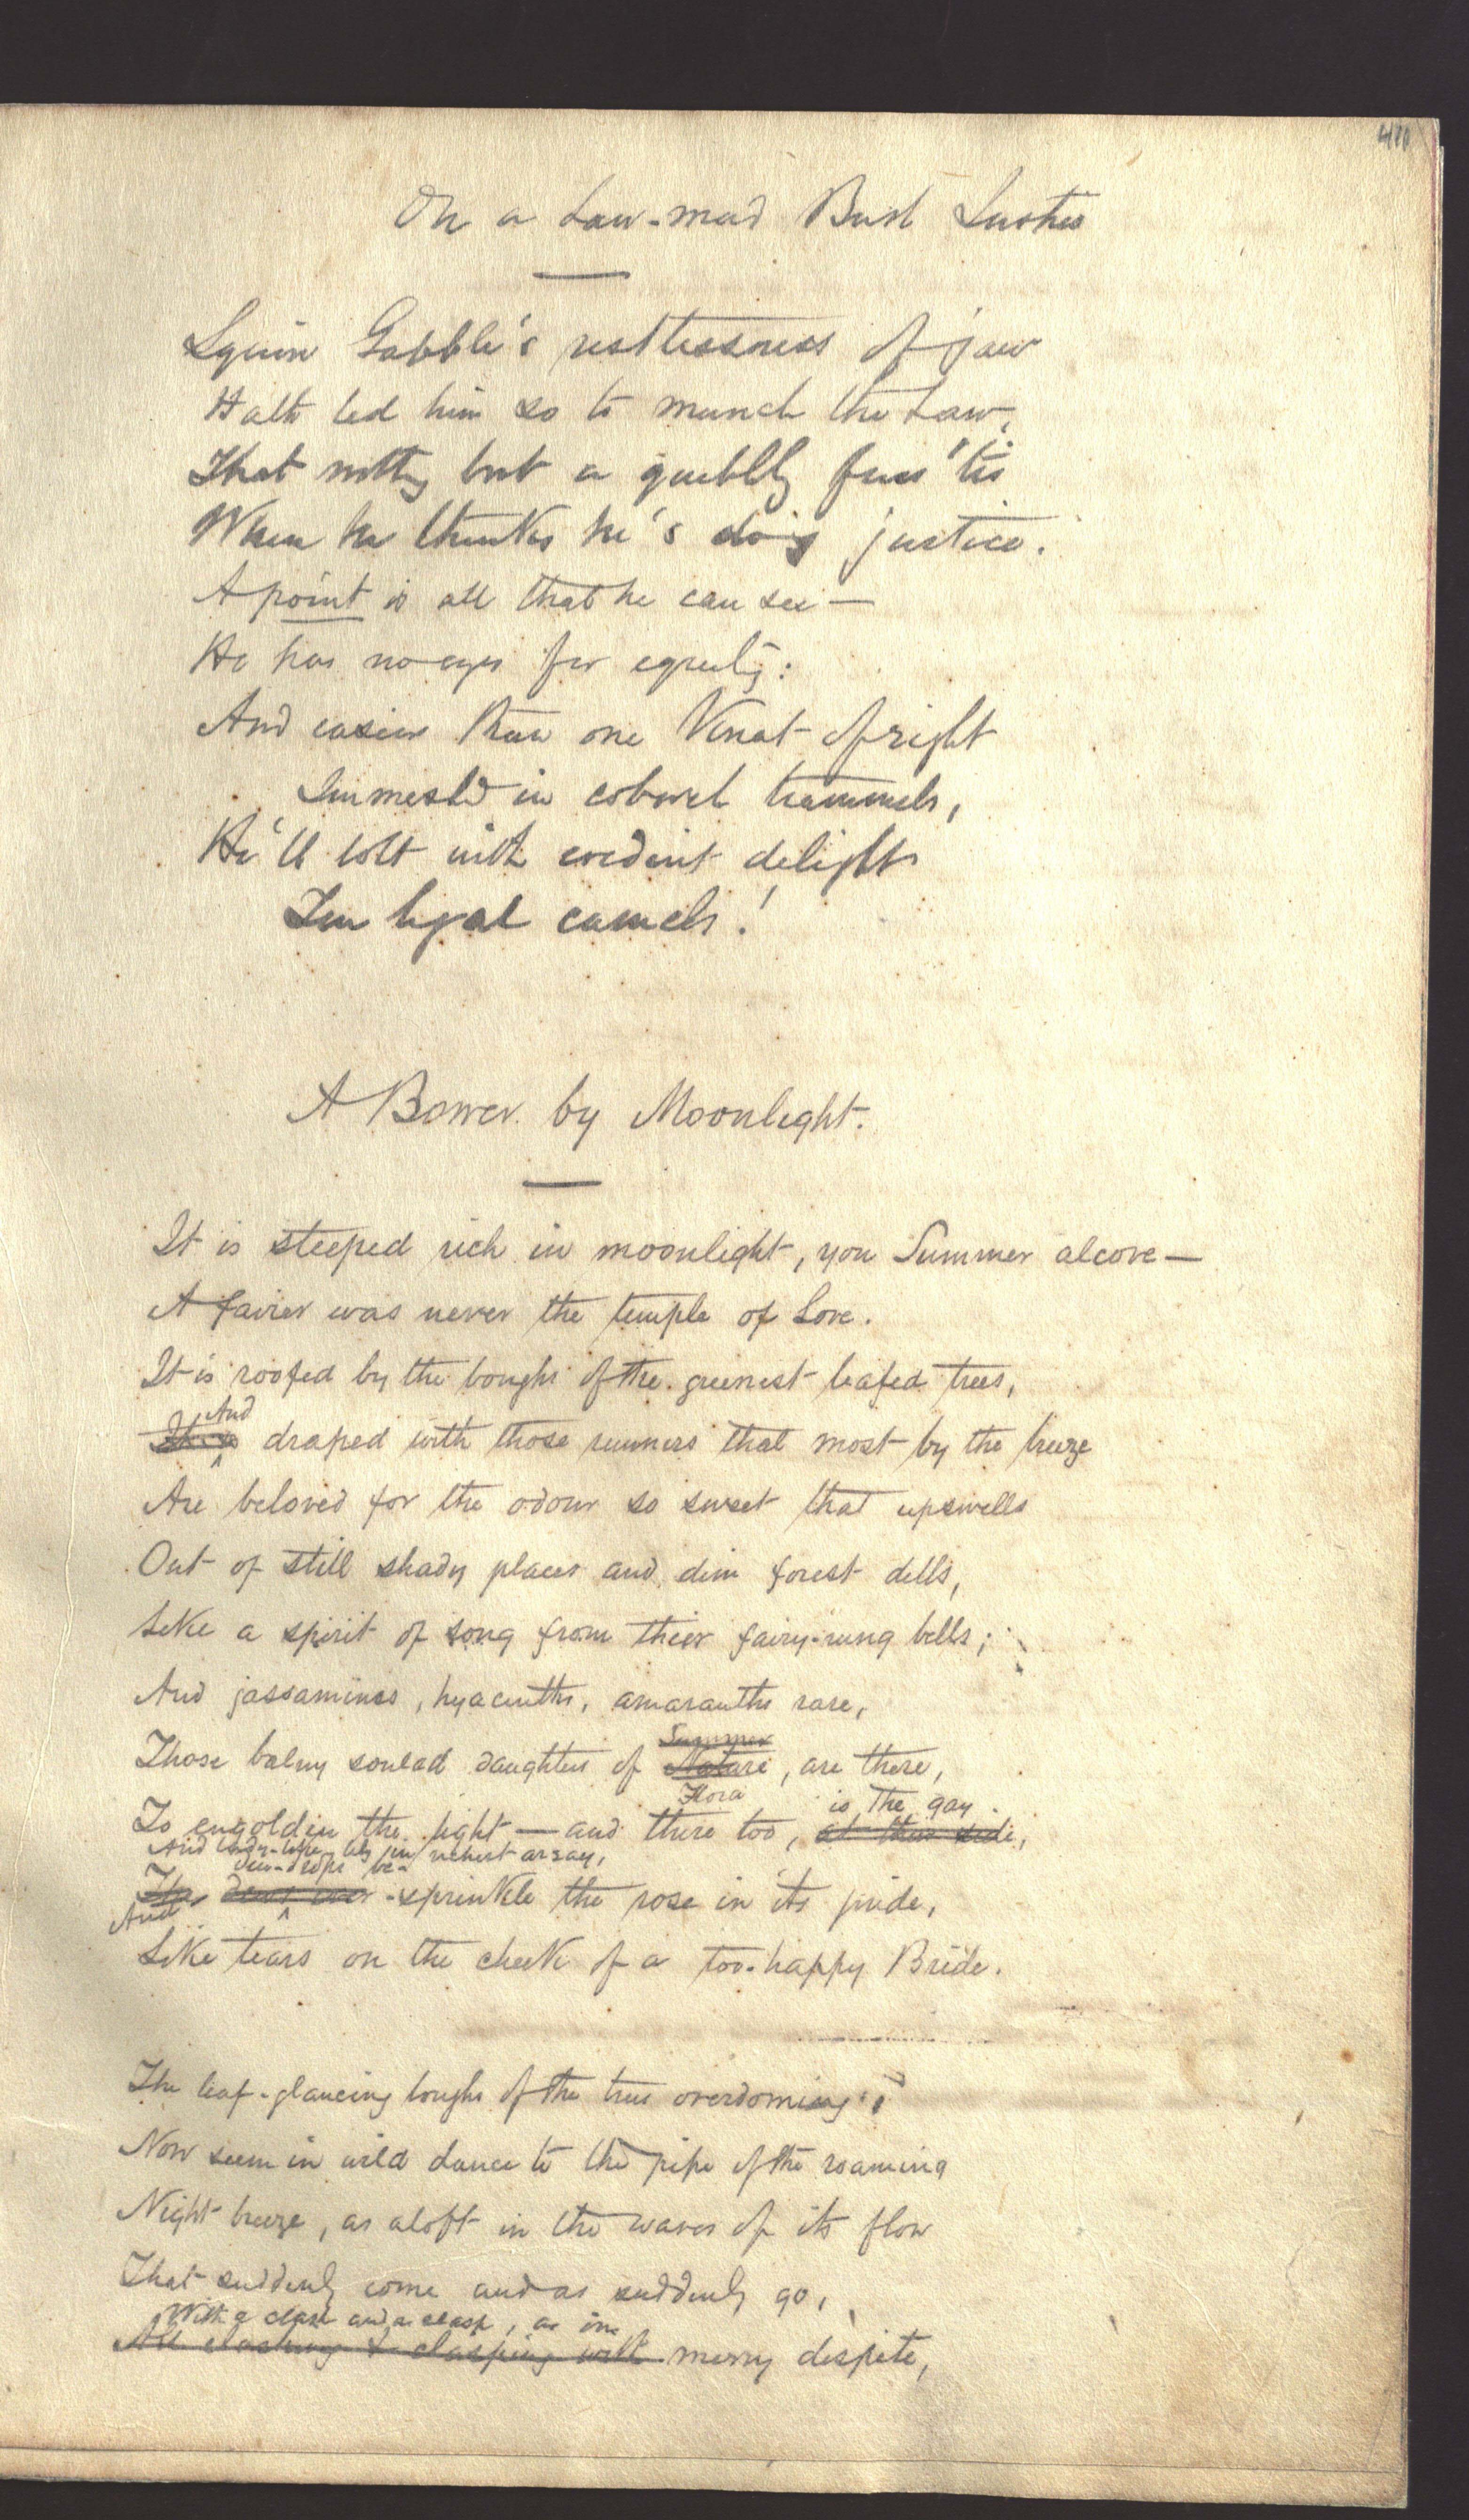 On a Law-mad Bush Justice
Squire Gabble's restlessness of jaw
Hath led him so to munch the Law,
That nothing but a quibbly fuss 'tis
When he thinks he's doing justice.
A point is all that he can see—
He has no eyes for equity:
And easier than one gnat of right
Immeshed in cobweb trammels,
He'll bolt with evident delight
Ten legal camels!
A Bower by Moonlight.
It is steeped rich in moonlight, yon Summer alcove—
A fairer was never the temple of Love.
It is roofed by the boughs of the greenest leafed trees,
And
It is draped with those runners that most by the breeze
Are beloved for the odour so sweet that upswells
Out of still shady places and dim forest dells,
Like a spirit of song from their fairy-rung bells;
And jassamines, hyacinths, amaranths rare,
Summer
Those balmy soulad daughters of Nature, are there,
Flora is The gay
To engolden the light—and there too, at their side,
And lady-like in richest array,
dew-drops be-
The dews over-sprinkle the rose in its pride,
And
Like tears on the cheek of a too-happy Bride.
The leaf-glancing boughs of the trees overdoming
Now seem in wild dance to the pipe of the roaming
Night breeze, as aloft in the waves of its flow
That suddenly come and as suddenly go,
With a clash and a clasp, as in
All clashing & clasping with merry despite,